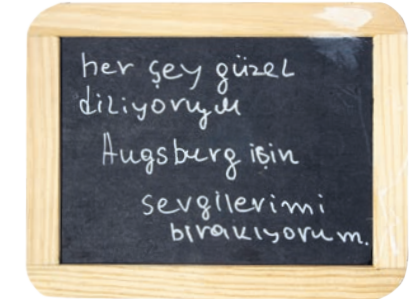 her şey güzel
diliyorum
Augsburg için
sevgilerimi
bırakıyorum.